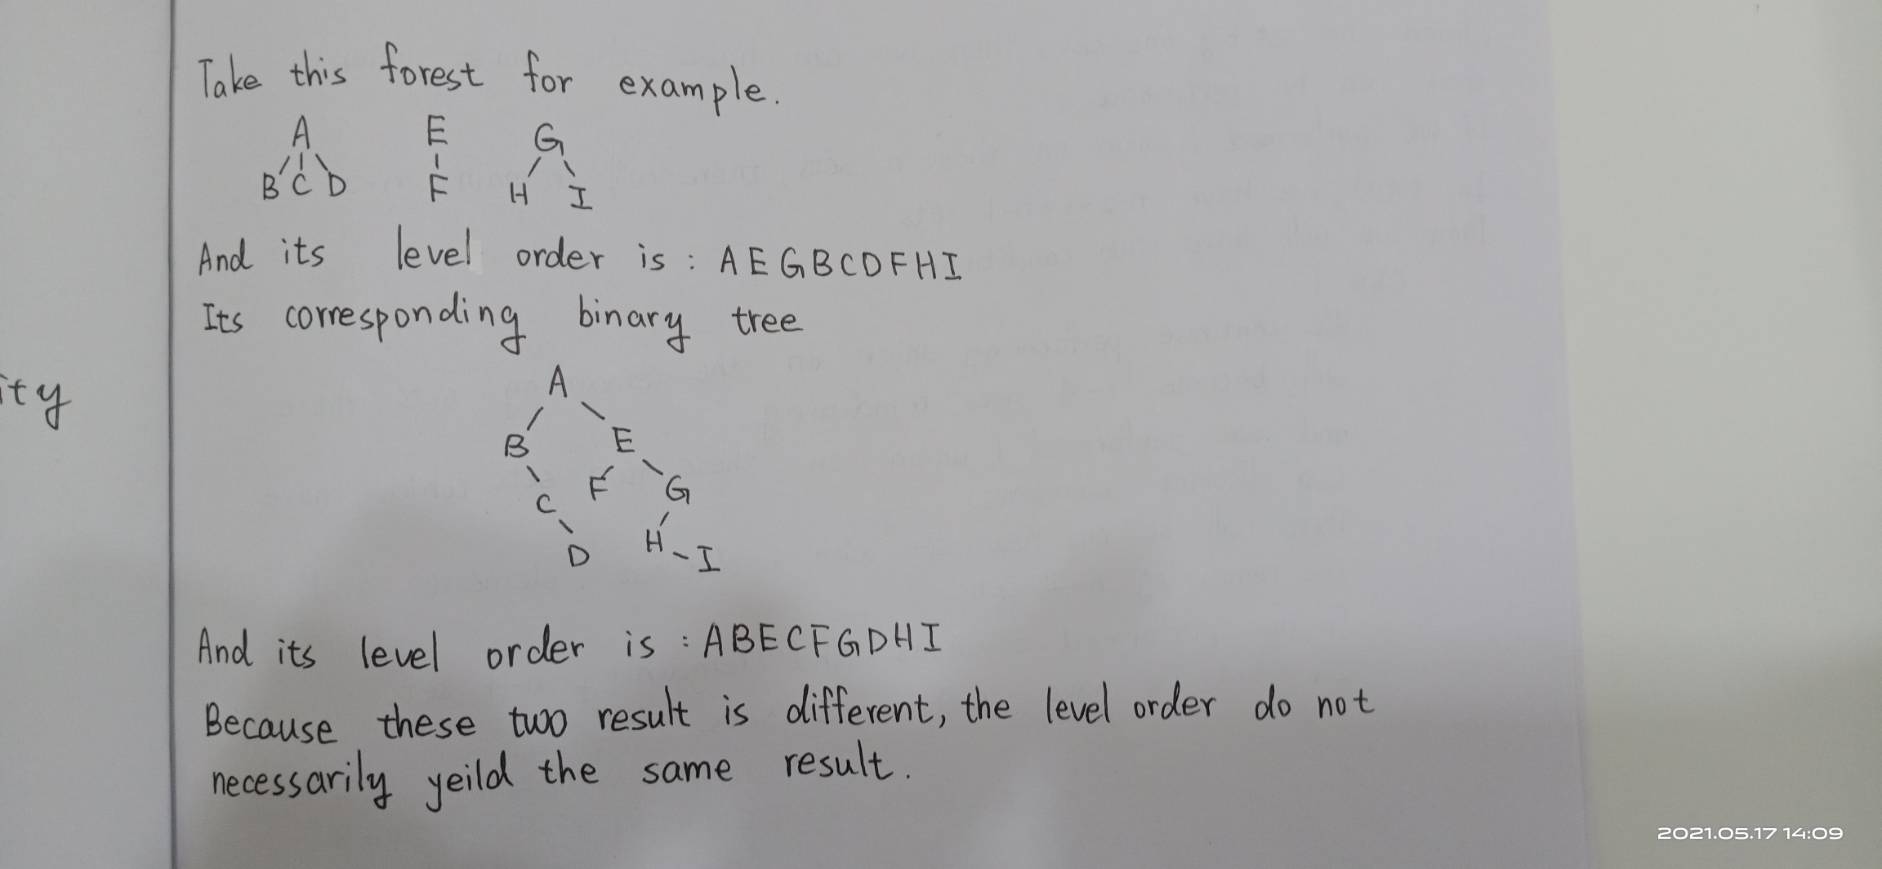 Take this forest for example.
A E G
B C D F H I
And its level order is : AEGBCDFHI
Its corresponding binary tree
A
ity
B E
C F G
D H I
And its level order is : ABECFGDHI
Because these two result is different, the level order do not
necessarily yeild the same result.
2021.05.17 14:09